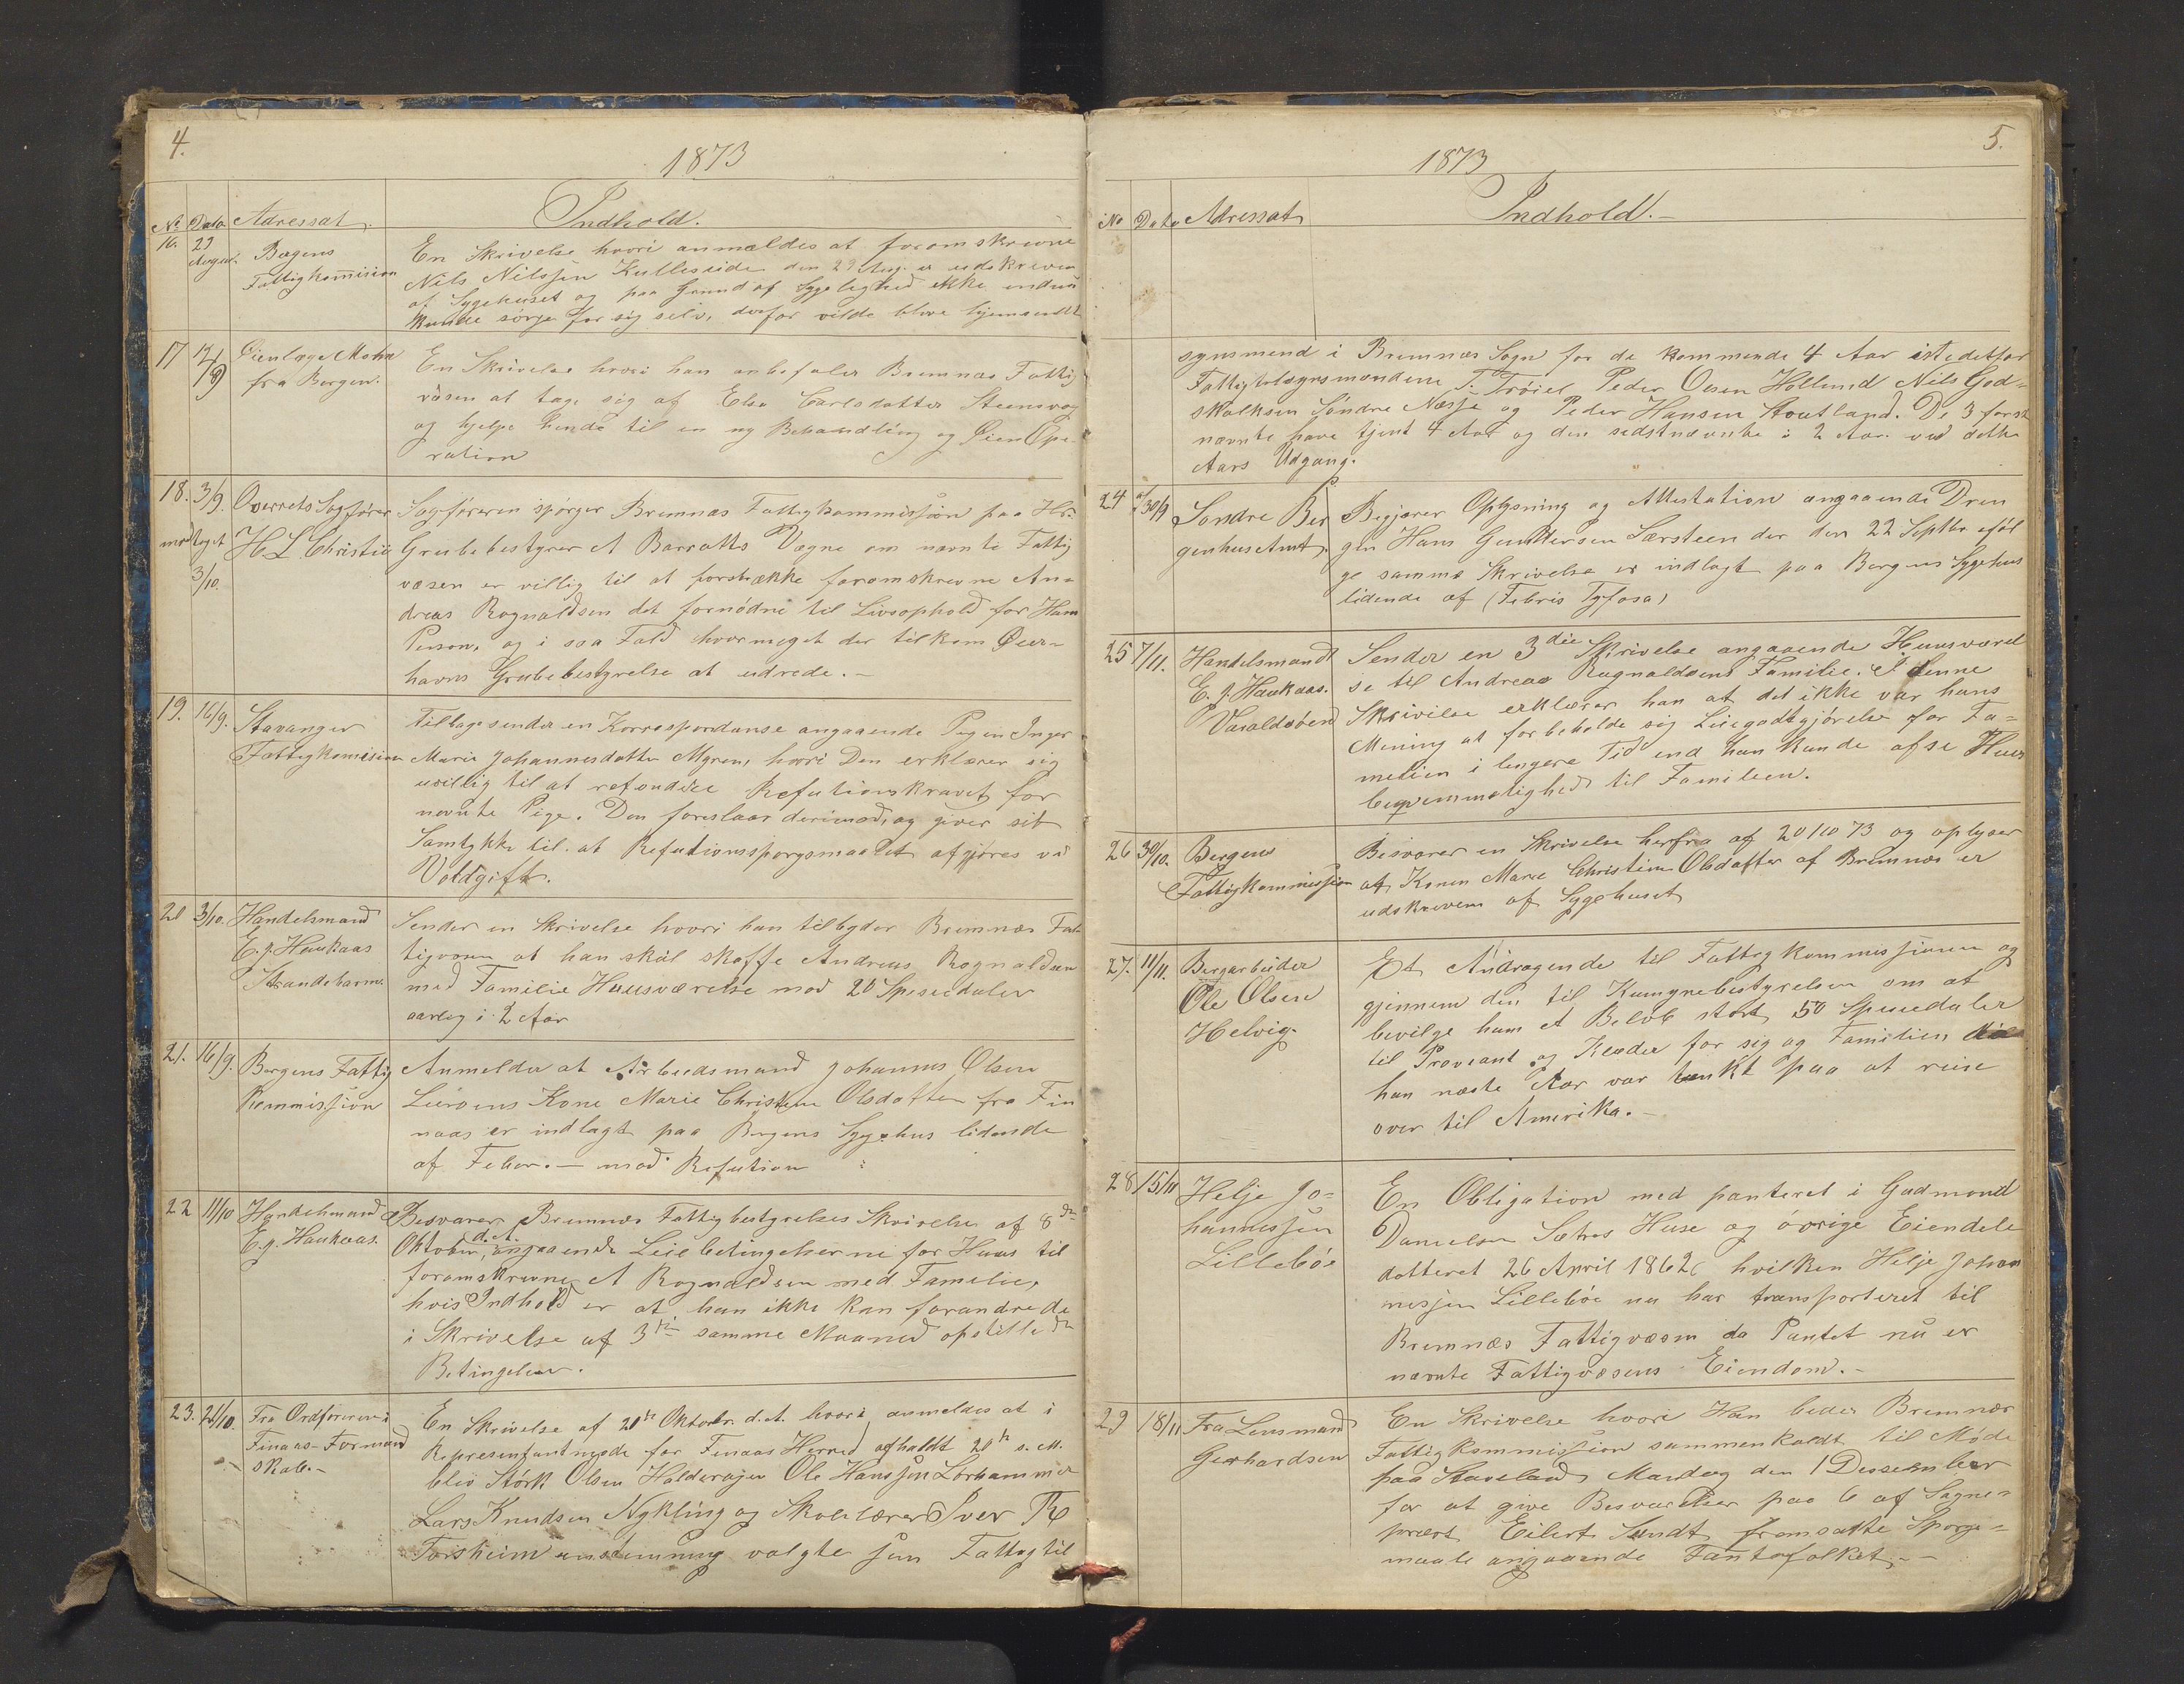 4.
1873
No Dato Adressat. Indhold.
16. 29 August. Bergens Fattigkommision
En Skrivelse hvori anmeldes at foromskrevne
Nils Nilssen Kulleseide den 29 Aug. er udskreven
af Sygehuset og paa Grund af Sygelighed ikke endnu
kunde sörge for sig selv, derfor vilde blive hjemsendt
17 12/9 Öienlæge Mohn
fra Bergen.
En Skrivelse hvori han anbefaler Bremnæs Fattig
væsen at tage sig af Elsa Carlsdatter Steensvag
og hjelpe hende til en ny Behandling og Öien Ope-
ration
18. 3/9. Overrets Sagförer
modtaget H. L. Christie
3/10.
Sagföreren spörger Bremnæs Fattigkommission paa Hr.
Grubebestyrer A Barratts Vegne om nævnte Fattig
væsen er villig til at forstrække foromskrevne An-
dreas Rognaldsen det fornödne til Livsophold for Ham
Person, og i saa Fald hvormeget der tilkom Öier-
havns Grubebestyrelse at udrede.-
19. 16/9. Stavanger
Fattigkomision
Tilbagesender en Korrespondanse angaaende Pigen Inger
Marie Johannesdatter Mgren, hvori Den erklærer sig
uvillig til at refundere Refutionskravet for
nævnte Pige. Den foreslaar derimod, og giver sit
Samtykke til at Refutionsspörgsmaalet afgjöres ved
Voldgift.
20 3/10. Handelsmand
E. J. Haukaas
Strandebarm.
Sender en Skrivelse hvori han tilbyder Bremnæs Fat-
tigvæsen at han skal skaffe Andreas Rognaldsen
med Familie Huusværelse mod 20 Spesiedaler
aarlig i 2 Aar
21. 16/9. Bergens Fattig
Kommission
Anmelder at Arbeidsmand Johannes Olsen
Lieröens Kone Marie Christine Olsdatter fra Fin
naas er indlagt paa Bergens Sygehus lidende
af Feber. — mod Refution
22 11/10 Handelsmand
E. J. Haukaas.
Besvarer Bremnæs Fattigbestyrelses Skrivelse af 8de
Oktober d. A. angaaende Leiebetingelserne for Huus til
foromskrevne A Rognaldsen med Familie,
hvis Indhold er at han ikke kan forandre de
i Skrivelse af 3die samme Maaned opstillede
Betingelser.
23. 21/10. Fra Ordföreren i
Finaas Formand
skab.-
En Skrivelse af 20de Oktober d. A. hvori anmeldes at i
Representantmöde for Finaas Herred afholdt 20de s. M.
blev Störk Olsen Halderager Ole Hanssen Lörhammer
Lars Knudsen Nykling og Skolelærer Iver
Torsheim enstemmig valgte som Fattigtil
5.
1873
No Dato Adressat Indhold.-
synsmend i Bremnæs Sogn for de kommende 4 Aar istedetfor
Fattigtilsynsmændene T. Tröiel Peder Olsen Hollund Nils God-
skalksen Söndre Næsse og Peder Hansen Stoutland. De 3 först
nævnte have tjent 4 Aar og den sidstnævnte i 2 Aar ved dette
Aars Udgang.
24 af 30/9 Söndre Ber
genhus Amt.
Begjærer Oplysning og Attestation angaaende Dren
gen Hans Gundersen Særsteen der den 22 Septbr iföl
ge samme Skrivelse er indlagt paa Bergens Sygehus
lidende af (Febris Tyfosa)
25 7/11. Handelsmandt
E. J. Haukaas.
Varaldsöen
Sender en 3die Skrivelse angaaende Huusværel
se til Andreas Rognaldsens Familie. I denne
Skrivelse erklærer han at det ikke var hans
Mening at forbeholde sig Leiegodtgjörelse for Fa-
melien i lengere Tid end han kunde afse Huus
beqvemmelighed til Familien.
26 30/10. Bergens
Fattigkommission
Besvarer en Skrivelse herfra af 20/10 73 og oplyser
at Konen Marie Christine Olsdatter af Bremnæs er
udskreven af Sygehuset
27. 11/11. Bergarbeider
Ole Olsen
Helvig.
Et Andragende til Fattigkommissionen og
gjennem den til Kumynebestyrelsen om at
bevilge ham et Belöb stort 50 Spesiedaler
til Proviant og Klæder for sig og Familien da
han næste Aar var tænkt paa at reise
over til Amerika.-
28 15/11 Helje Jo-
hannessen
Lilleböe
En Obligation med panteret i Gudmond
Danielsen Sætres Huse og övrige Eiendele
datteret 26 April 1862, hvilken Helje Johan
nessen Lilleböe nu har transporteret til
Bremnæs Fattigvæsen da Pantet nu er
nævnte Fattigvæsens Eiendom.-
29 18/11 Fra Lensmand
Gerhardsen
En Skrivelse hvori Han beder Bremnæs
Fattigkommission sammenkaldt til Möde
paa Staveland Mandag den 1 Dessember
for at give Besvarelser paa 6 af Sogne-
præst Eilert Sundt fremsatte Spörgs-
maale angaaende Fantefolket.-